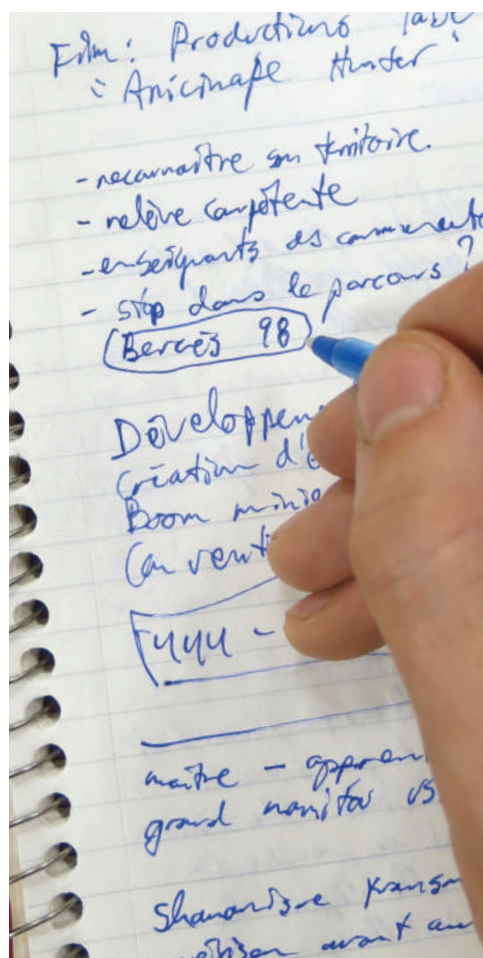 Film: Productions
"Anicinape Hunter"
- reconnaître son territoire.
- relève compétente
- enseignants des
- stop dans le parcours?
Bercés 98
Développem
Création d'
Boom mini
Convent
444 -
maître - appren
grand monitor vs.
Shamanisme
avant